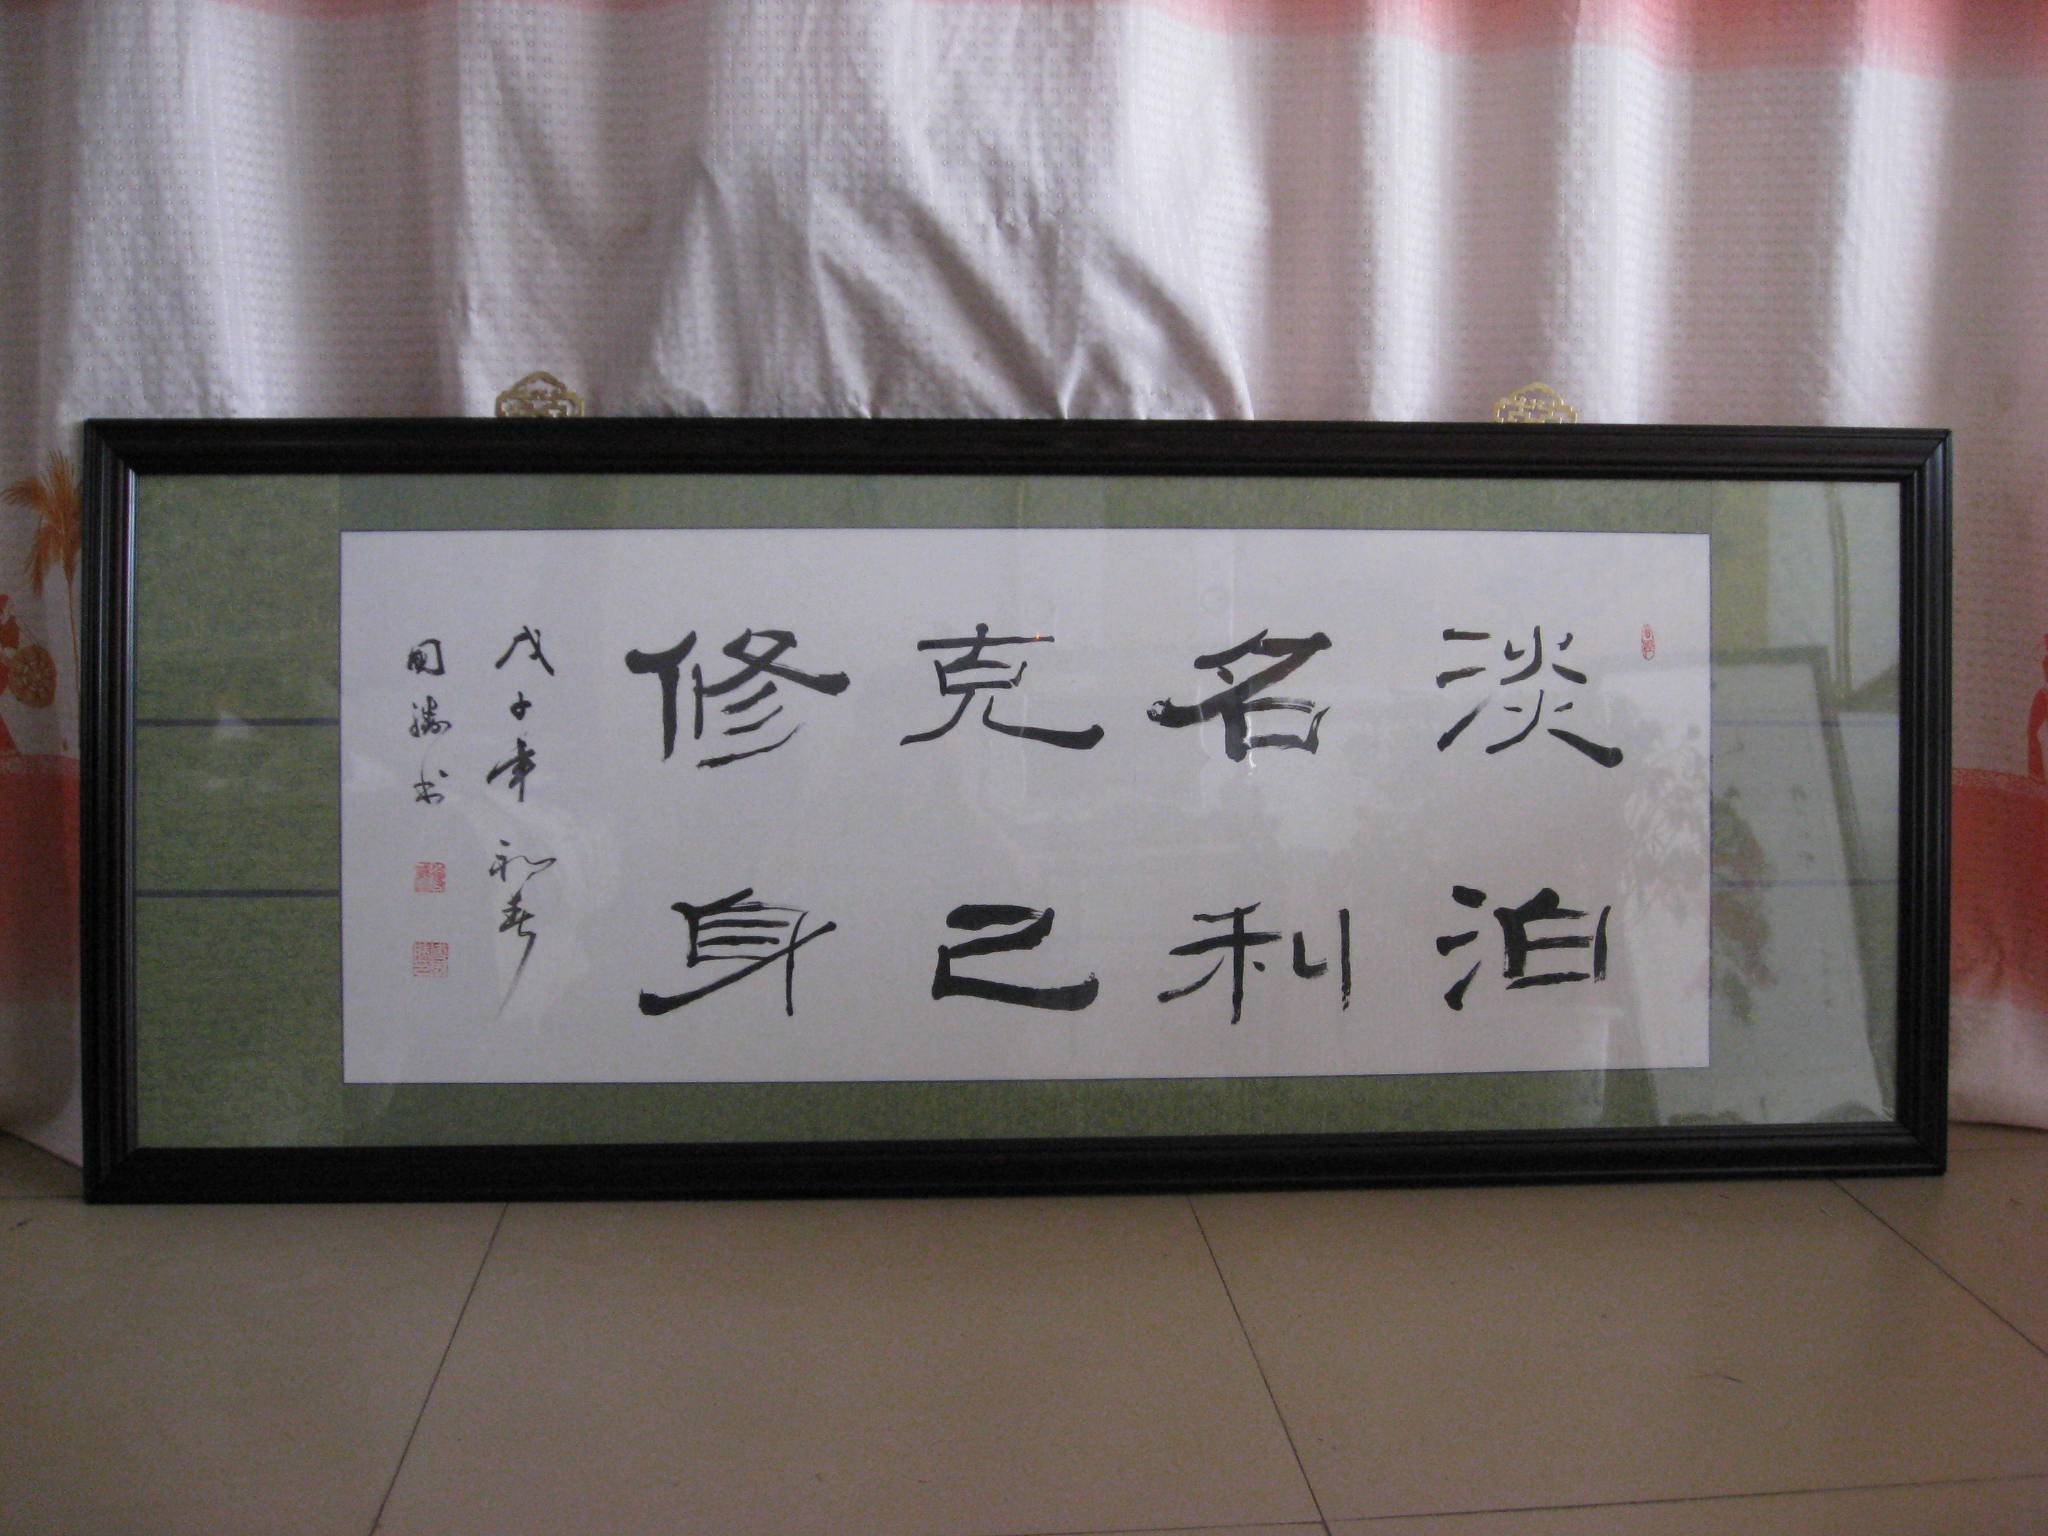 淡泊
名利
克己
修身
戊子年初春
国胜书